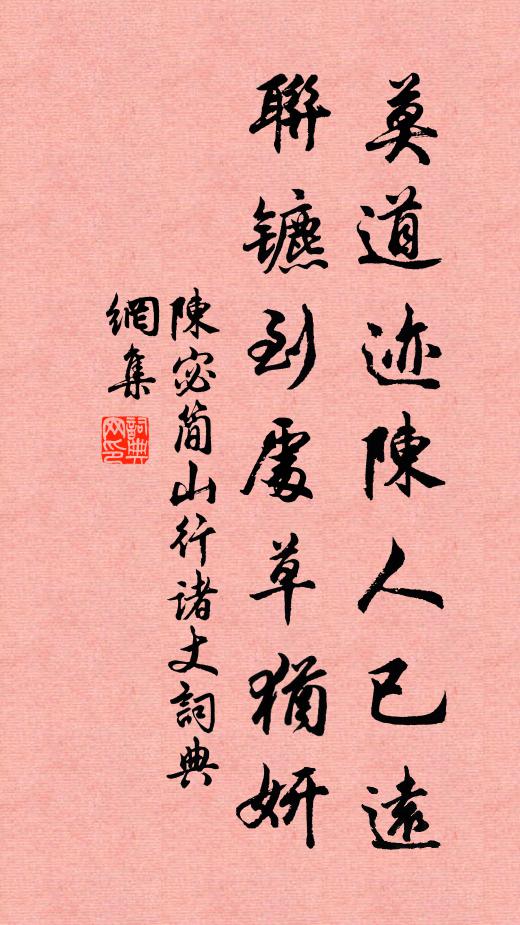 莫道迹陳人已遠
聯镳到處草猶妍
陳宓簡山行諸丈詞典
網集
詞典網印